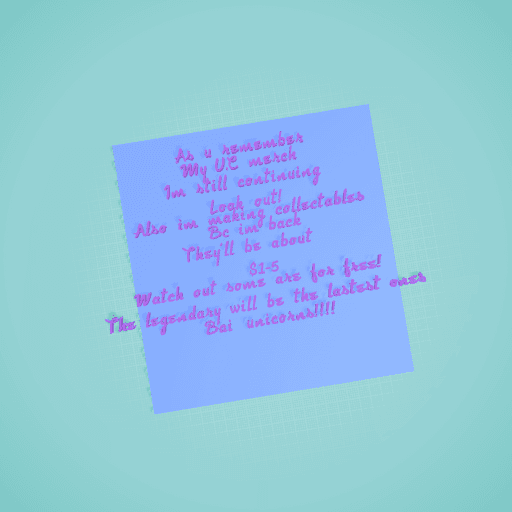 As u remember
My U.C merch
Im still continuing
Look out!
Also im making collectables
Bc im back
They'll be about
$1-5
Watch out some are for free!
The legendary will be the lastest ones
Bai unicorns!!!!